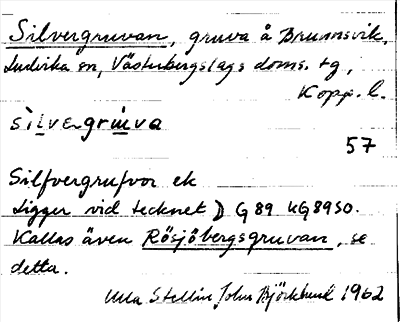 Silvergruvan, gruva å Brunnsvik,
Ludvika sn, Västerbergslags doms. tg,
Kopp. l.
sìlvergrùva
57
Silfvergrufvor ek
Ligger vid tecknet D G 89 UG 89 SO.
Kallas även Rösjöbergsgruvan, se
detta.
Ulla Stellin John Björklund 1962